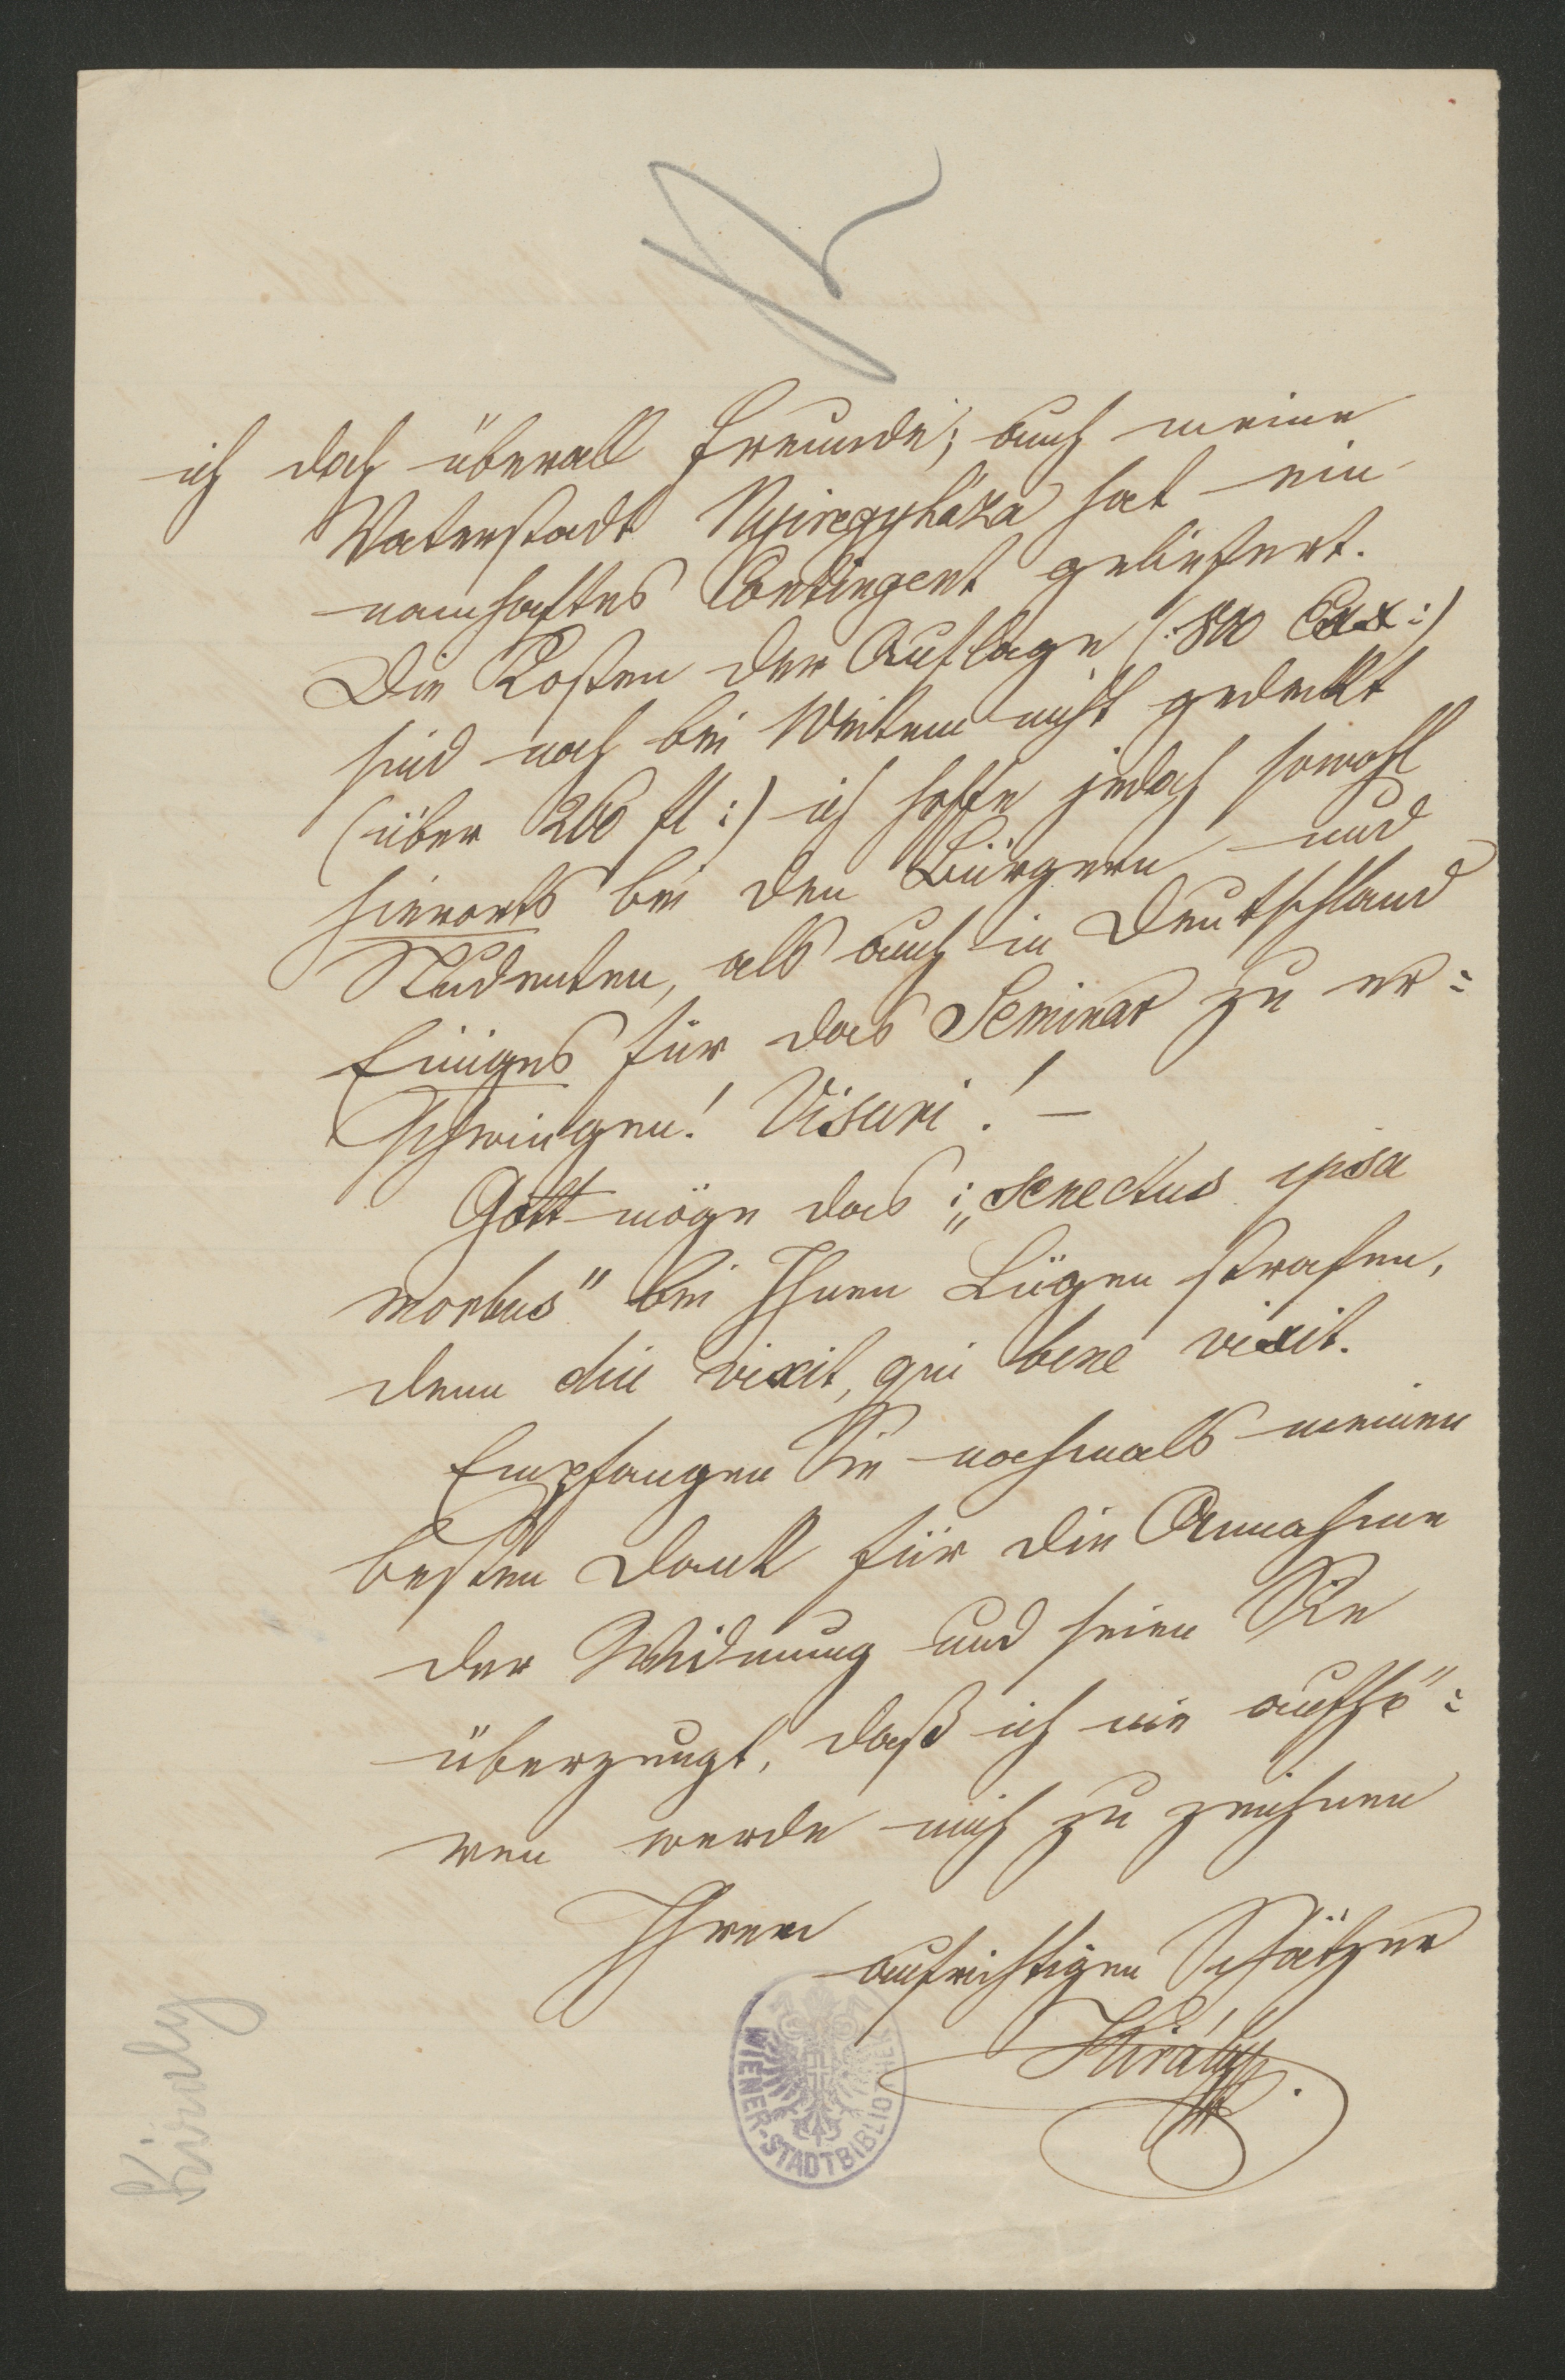 ich doch überall Freunde; auch meine
Vaterstadt Nyiregyháza hat ein
namhaftes Contingent geliefert.
Die Kosten der Auflage (: Ex :)
sind noch bei Weitem nicht gedeckt
(über 260 fl :) ich hoffe jedoch sowohl
hierorts bei den Bürgern und
Studenten, als auch in Deutschland
Einiges für das Seminar zu er=
schwingen! Visuri! —
Gott möge das: „senectus ipsa
morbus" bei Ihnen Lügen strafen,
denn diu vixit, qui bene vixit.
Empfangen Sie nochmals meinen
besten Dank für die Annahme
der Widmung und seien Sie
überzeugt, daß ich nie aufhö=
ren werde mich zu zeichnen
Ihren
aufrichtigen Schätzer
Király
WIENER-STADTBIBLIOTHEK
Kiraly